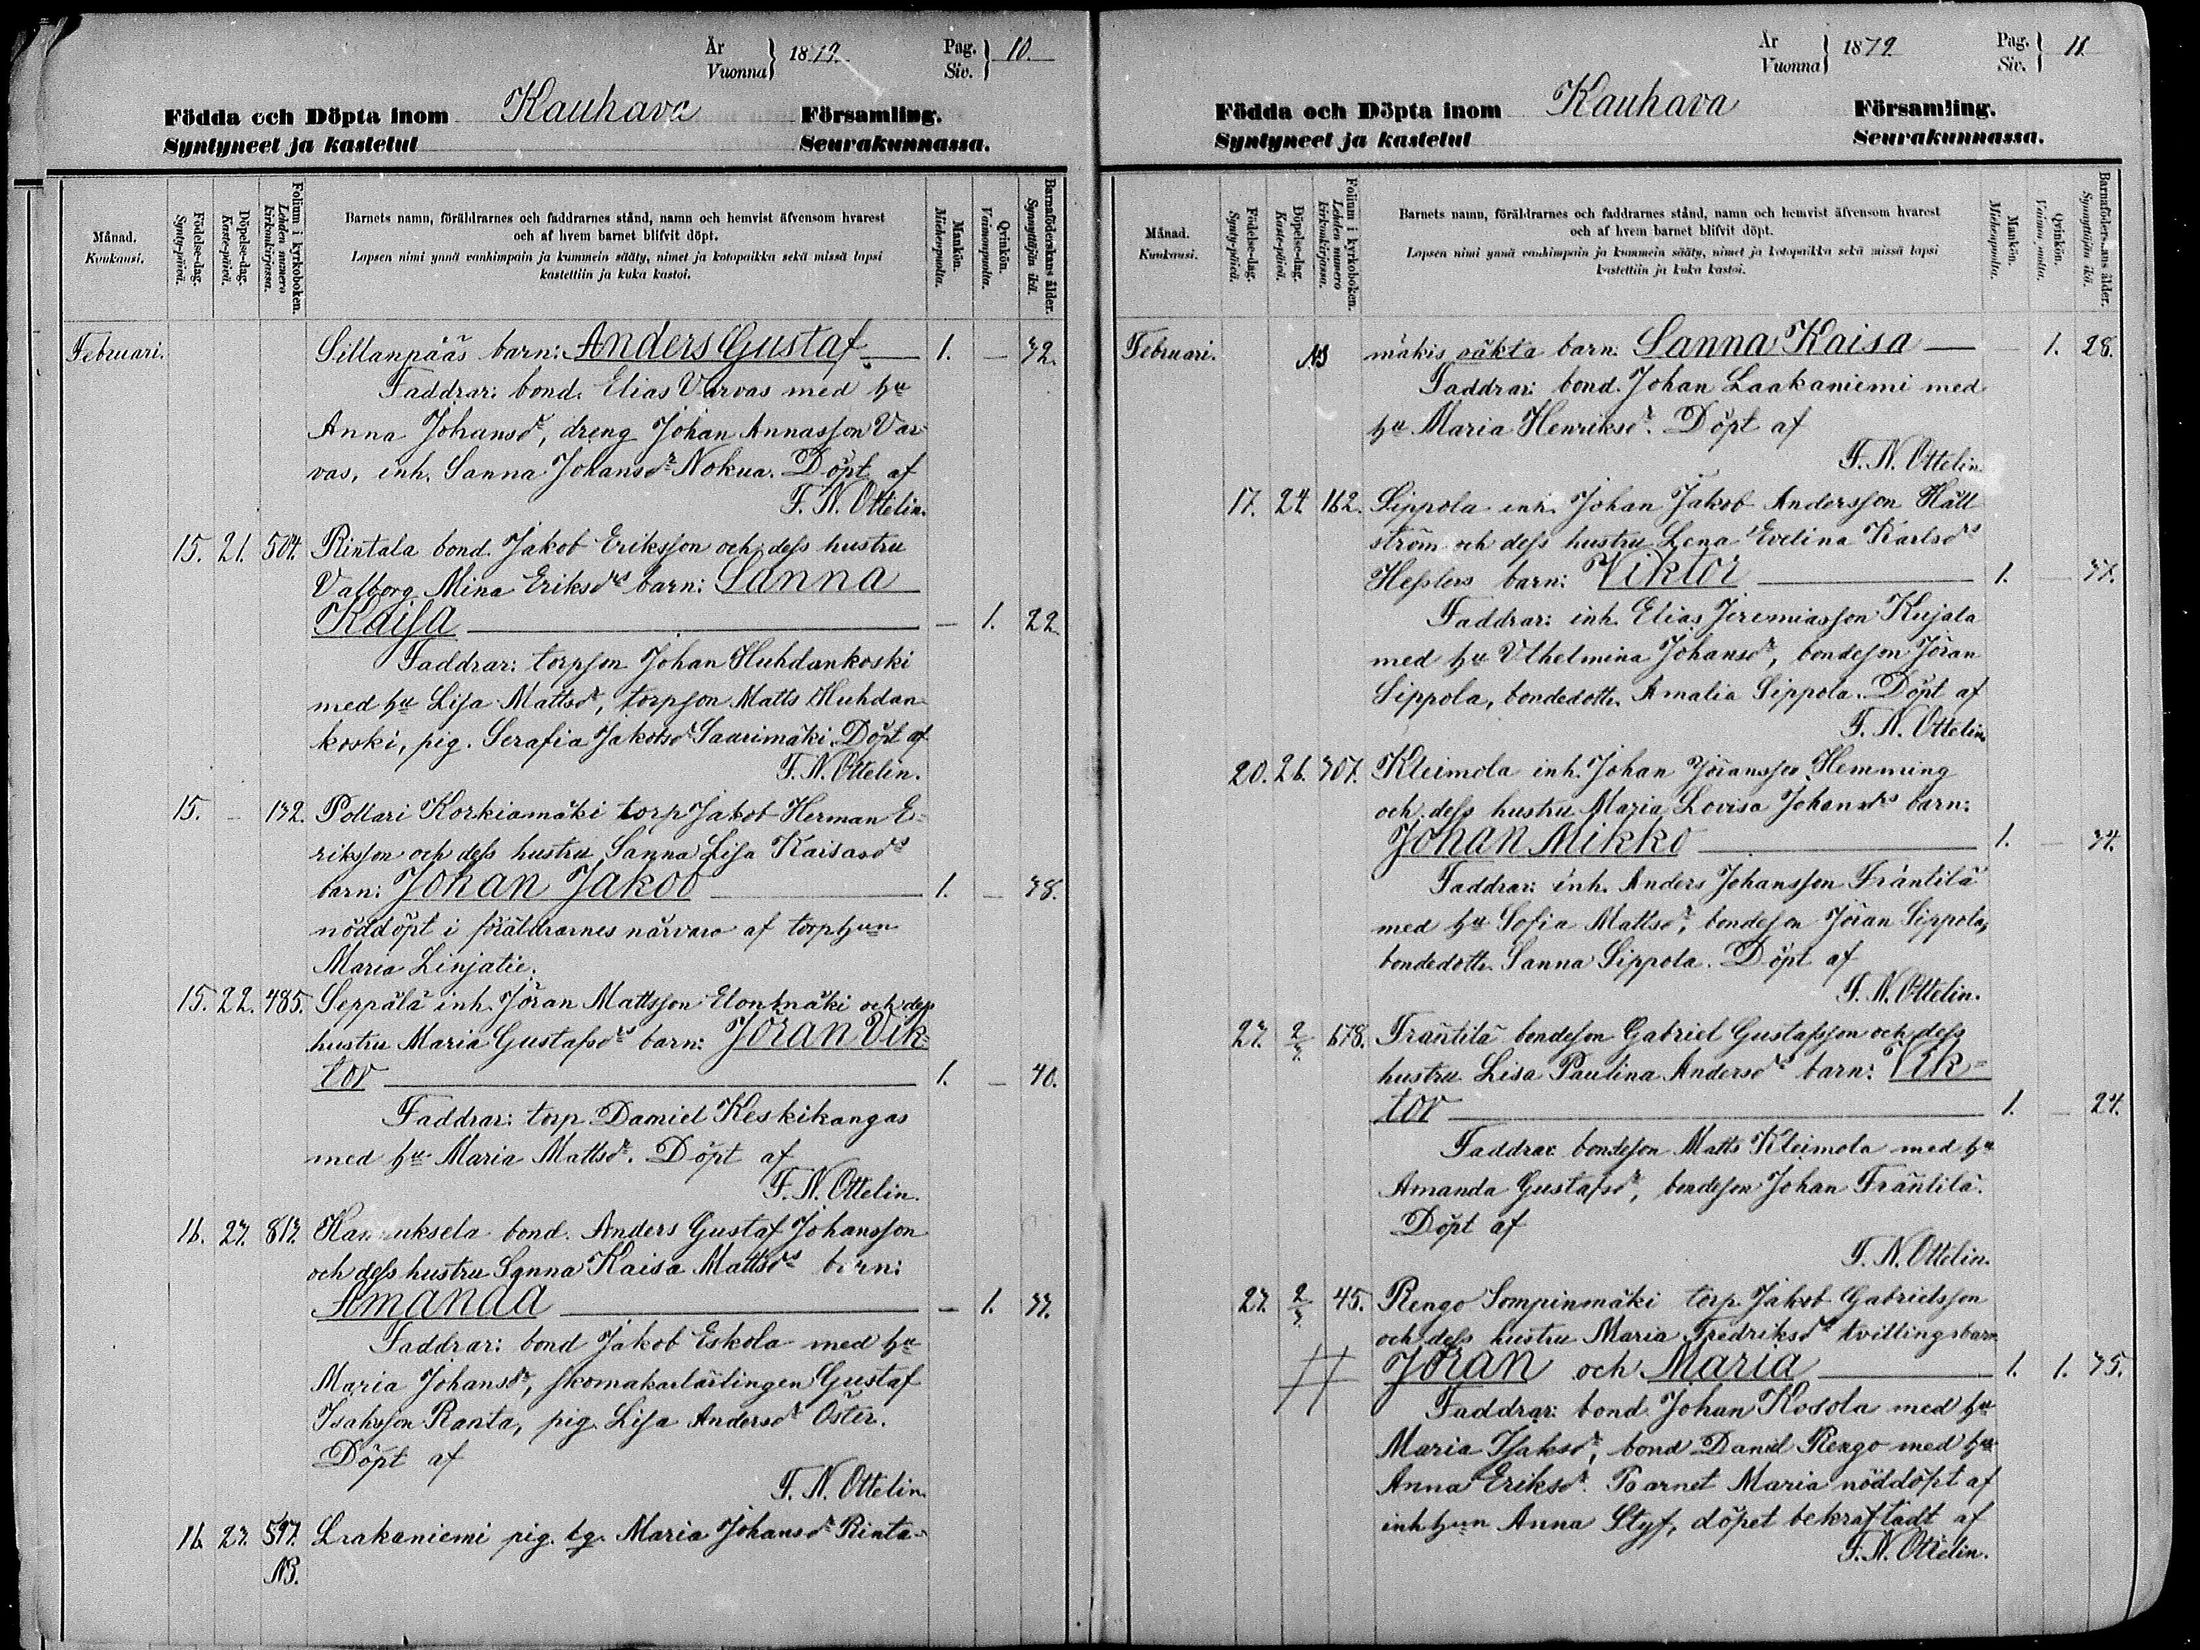 År
Vuonna} 1879. Pag.
Siv.} 10.
Födda och Döpta inom Kauhava Församling.
Syntyneet ja kastetut Seurakunnassa.
Månad.
Kuukausi.
Födelse-dag.
Synty-päivä.
Döpelse-dag.
Kaste-päivä.
Folium i kyrkoboken.
Lehden numero
kirkonkirjassa.
Barnets namn, föräldrarnes och faddrarnes stånd, namn och hemvist äfvensom hvarest
och af hvem barnet blifvit döpt.
Lapsen nimi ynnä vanhimpain ja kummein sääty, nimet ja kotopaikka sekä missä lapsi
kastettiin ja kuka kastoi.
Mankön.
Miehenpuolta.
Qvinkön.
Vaimonpuolta.
Barnaföderskans ålder.
Synnyttäjän ikä.
Februari. Sillanpääs barn: Anders Gustaf 1. — 32.
Faddrar: bond. Elias Varvas med hu
Anna Johansdr, dreng Johan Annasson Var-
vas, inh. Sanna Johansdr Nokua. Döpt af
F. N. Ottelin.
15. 21. 504. Rintala bond. Jakob Eriksson och dess hustru
Valborg Mina Eriksdrs barn: Sanna
Kaisa — 1. 22.
Faddrar: torpson Johan Huhdankoski
med hu Lisa Mattsdr, torpson Matts Huhdan-
koski, pig. Serafia Jakobsdr Saarimäki. Döpt af
F. N. Ottelin.
15. — 132. Pollari Korkiamäki torp Jakob Herman E-
riksson och dess hustru Sanna Lisa Kaisasdrs
barn: Johan Jakob 1. — 38.
nöddöpt i föräldrarnes närvaro af torphun
Maria Linjatie.
15. 22. 485. Seppälä inh. Jöran Mattsson Elomäki och dess
hustru Maria Gustafsdrs barn: Jöran Vik-
tor 1. — 40.
Faddrar: torp. Daniel Keskikangas
med hu Maria Mattsdr. Döpt af
F. N. Ottelin.
16. 23. 813. Hanuksela bond. Anders Gustaf Johansson
och dess hustru Sanna Kaisa Mattsdrs barn:
Amanda — 1. 33.
Faddrar: bond Jakob Eskola med hu
Maria Johansdr, skomakarlärlingen Gustaf
Isaksson Ranta, pig. Lisa Andersdr Öster.
Döpt af
F. N. Ottelin.
16. 23. 597. Laakaniemi pig. lg. Maria Johansdr Rinta-
NB.
År
Vuonna} 1879. Pag.
Siv.} 11
Födda och Döpta inom Kauhava Församling.
Syntyneet ja kastetut Seurakunnassa.
Månad.
Kuukausi.
Födelse-dag.
Synty-päivä.
Döpelse-dag.
Kaste-päivä.
Folium i kyrkoboken.
Lehden numero
kirkonkirjassa.
Barnets namn, föräldrarnes och faddrarnes stånd, namn och hemvist äfvensom hvarest
och af hvem barnet blifvit döpt.
Lapsen nimi ynnä vanhimpain ja kummein sääty, nimet ja kotopaikka sekä missä lapsi
kastettiin ja kuka kastoi.
Mankön.
Miehenpuolta.
Qvinkön.
Vaimonpuolta.
Barnaföderskans ålder.
Synnyttäjän ikä.
Februari. NB mäkis oäkta barn: Sanna Kaisa 1. 28.
Faddrar: bond. Johan Laakaniemi med
hu Maria Henriksdr. Döpt af
F. N. Ottelin.
17. 24. 162. Sippola inh. Johan Jakob Andersson Häll
ström och dess hustru Lena Evelina Karlsdrs
Hesslers barn: Viktor 1. — 31.
Faddrar: inh. Elias Jeremiasson Kujala
med hu Vilhelmina Johansdr, bondeson Jöran
Sippola, bondedottr. Amalia Sippola. Döpt af
F. N. Ottelin
20. 26. 301. Kleimola inh. Johan Jöransson Hemming
och dess hustru Maria Lovisa Johansdrs barn:
Johan Mikko 1. — 34.
Faddrar: inh. Anders Johansson Fräntilä
med hu Sofia Mattsdr, bondeson Jöran Sippola,
bondedottr. Sanna Sippola. Döpt af
F. N. Ottelin.
23. 2/3. 678. Fräntilä bondeson Gabriel Gustafsson och dess
hustru Lisa Paulina Andersdrs barn: Vik-
tor 1. — 24.
Faddrar: bondeson Matts Kleimola med hu
Amanda Gustafsdr, bondeson Johan Fräntilä.
Döpt af
F. N. Ottelin.
23. 2/3. 45. Rengo Sompinmäki torp. Jakob Gabrielsson
och dess hustru Maria Fredriksdrs tvillingsbarn
Jöran och Maria 1. 1. 35.
Faddrar: bond. Johan Kosola med hu
Maria Isaksdr, bond Daniel Rengo med hu
Anna Eriksdr. Barnet Maria nöddöpt af
inhhun Anna Styf, döpet bekräftadt af
F. N. Ottelin.